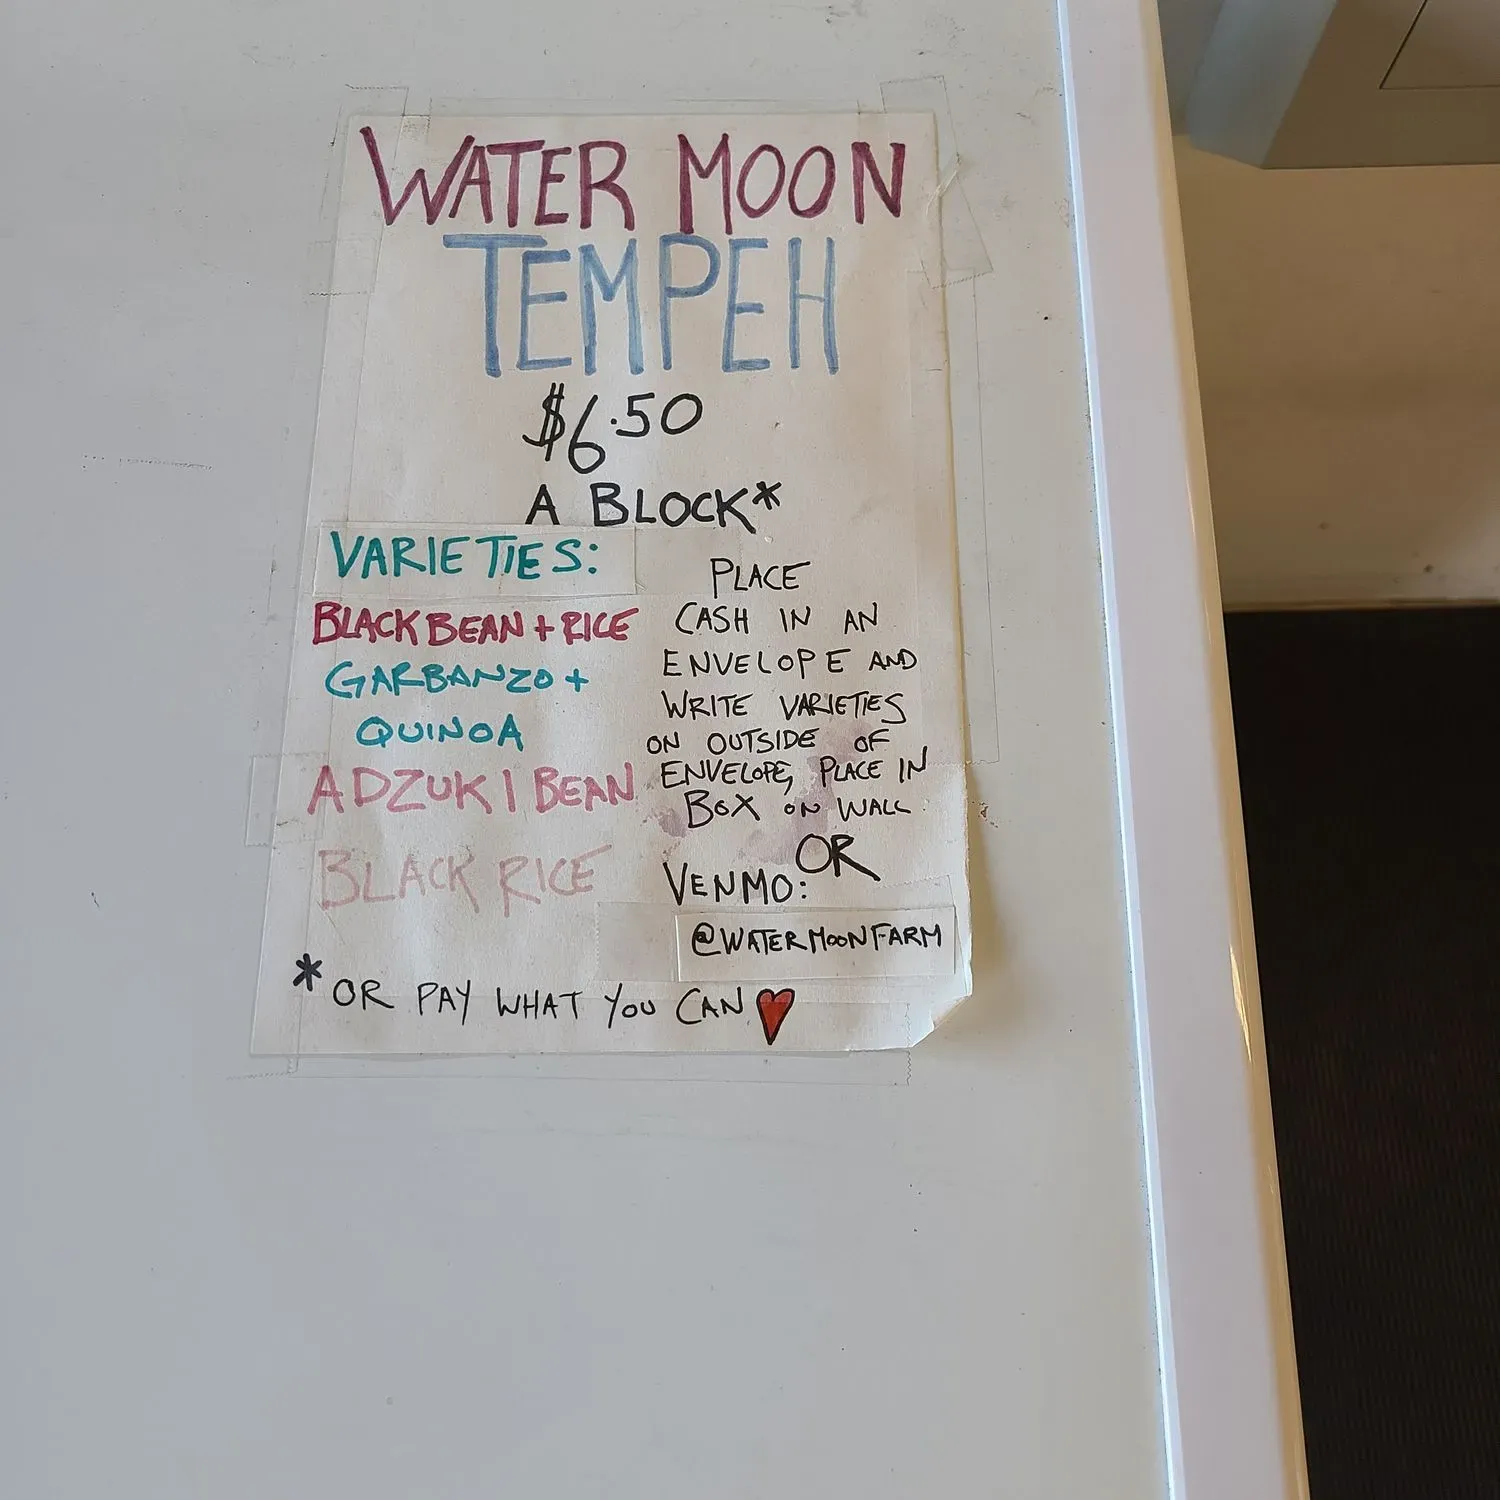 WATER MOON
TEMPEH
$6.50
A BLOCK*
VARIETIES:
BLACK BEAN + RICE
GARBANZO +
QUINOA
ADZUKI BEAN
BLACK RICE
PLACE
CASH IN AN
ENVELOPE AND
WRITE VARIETIES
ON OUTSIDE OF
ENVELOPE, PLACE IN
BOX ON WALL
OR
VENMO:
@WATERMOONFARM
*OR PAY WHAT YOU CAN